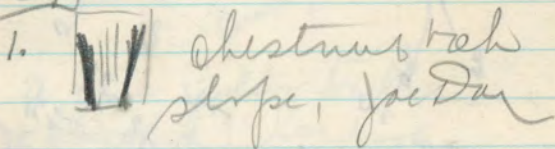 1. chestnut oak
slope, Joe Day